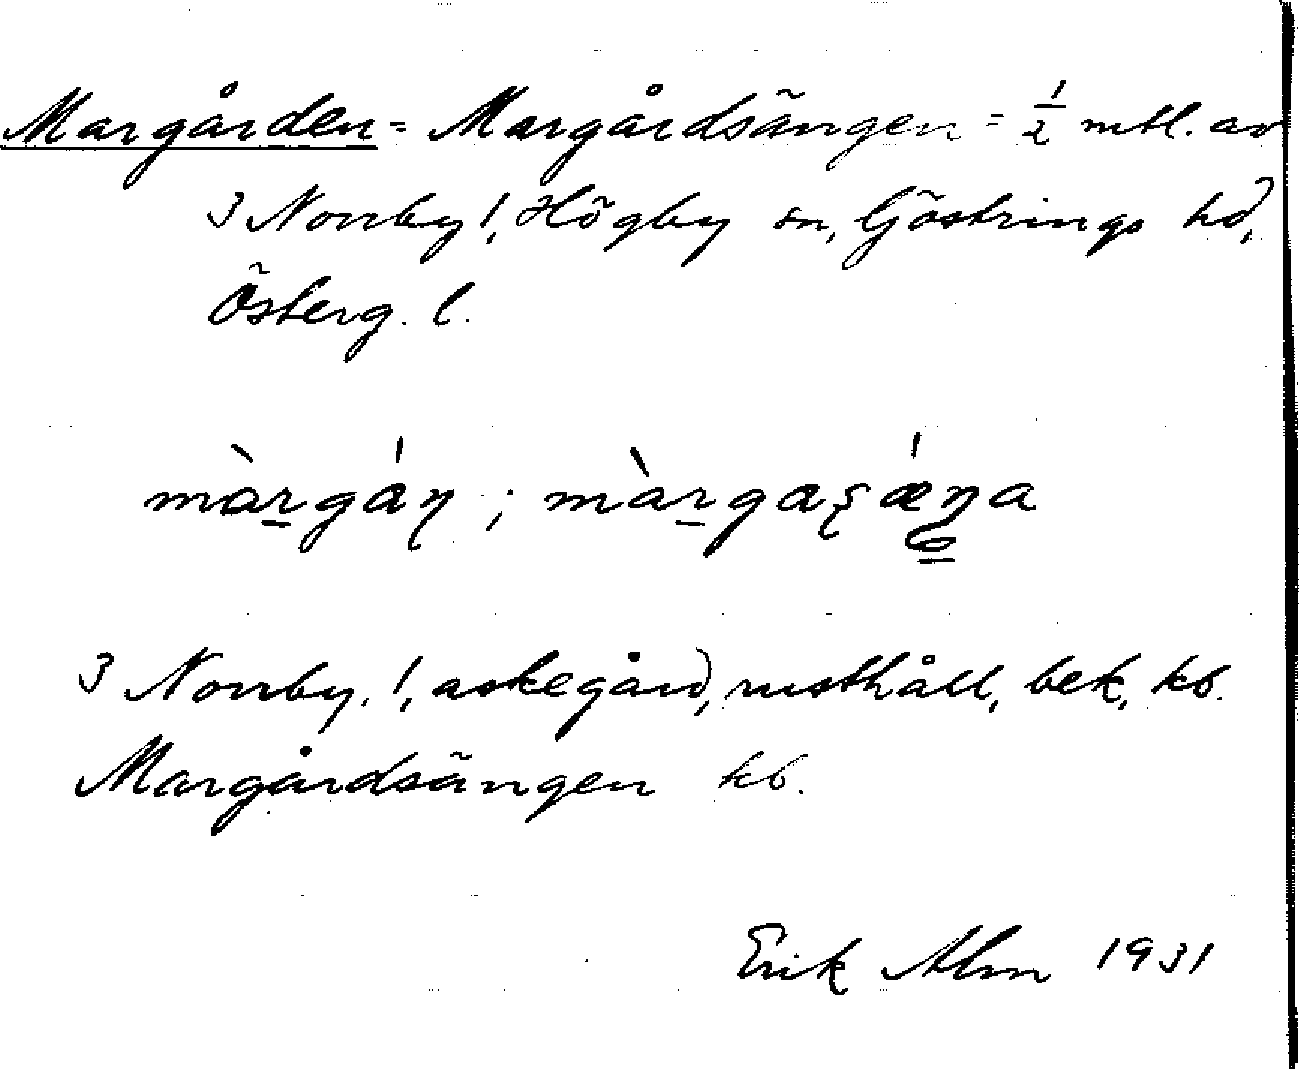 Margården = Margårdsängen = ½ mtl. av
3 Norrby !, Högby sn, Göstrings hd,
Österg. l.
màrgán ; màrgasǽŋa
3 Norrby, !, askegård, rusthåll, bek, kb.
Margårdsängen kb.
Erik Alm 1931